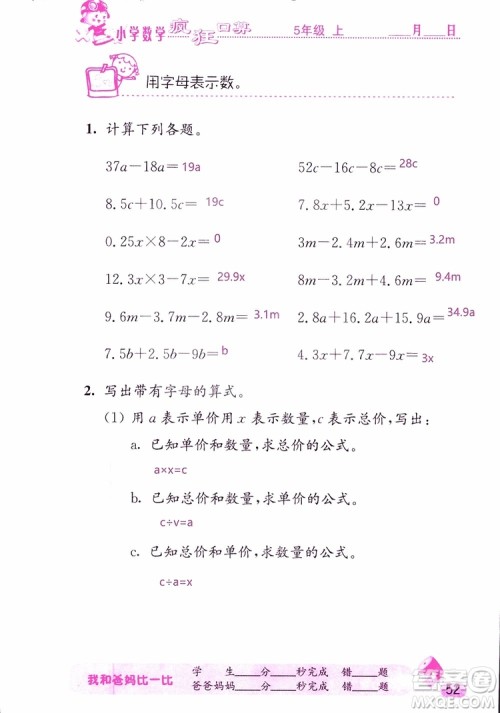 小学数学 疯狂口算 5年级 上 ____月____日
用字母表示数。
1. 计算下列各题。
37a－18a＝19a 52c－16c－8c＝28c
8.5c＋10.5c＝19c 7.8x＋5.2x－13x＝0
0.25x×8－2x＝0 3m－2.4m＋2.6m＝3.2m
12.3x＋17.6x＝29.9x 8m－3.2m＋4.6m＝9.4m
9.6m－5.1m－1.4m＝3.1m
7.5b＋2.5b－9b＝b 3x
2. 写出带有字母的算式。
(1) 用 a 表示单价用 x 表示数量,c 表示总价,写出:
a. 已知单价和数量,求总价的公式。
a×x=c
b. 已知总价和数量,求单价的公式。
c÷v=a
c. 已知总价和单价,求数量的公式。
c÷a=x
我和爸妈比一比
学 生____分____秒完成 错____题
爸爸妈妈____分____秒完成 错____题
52